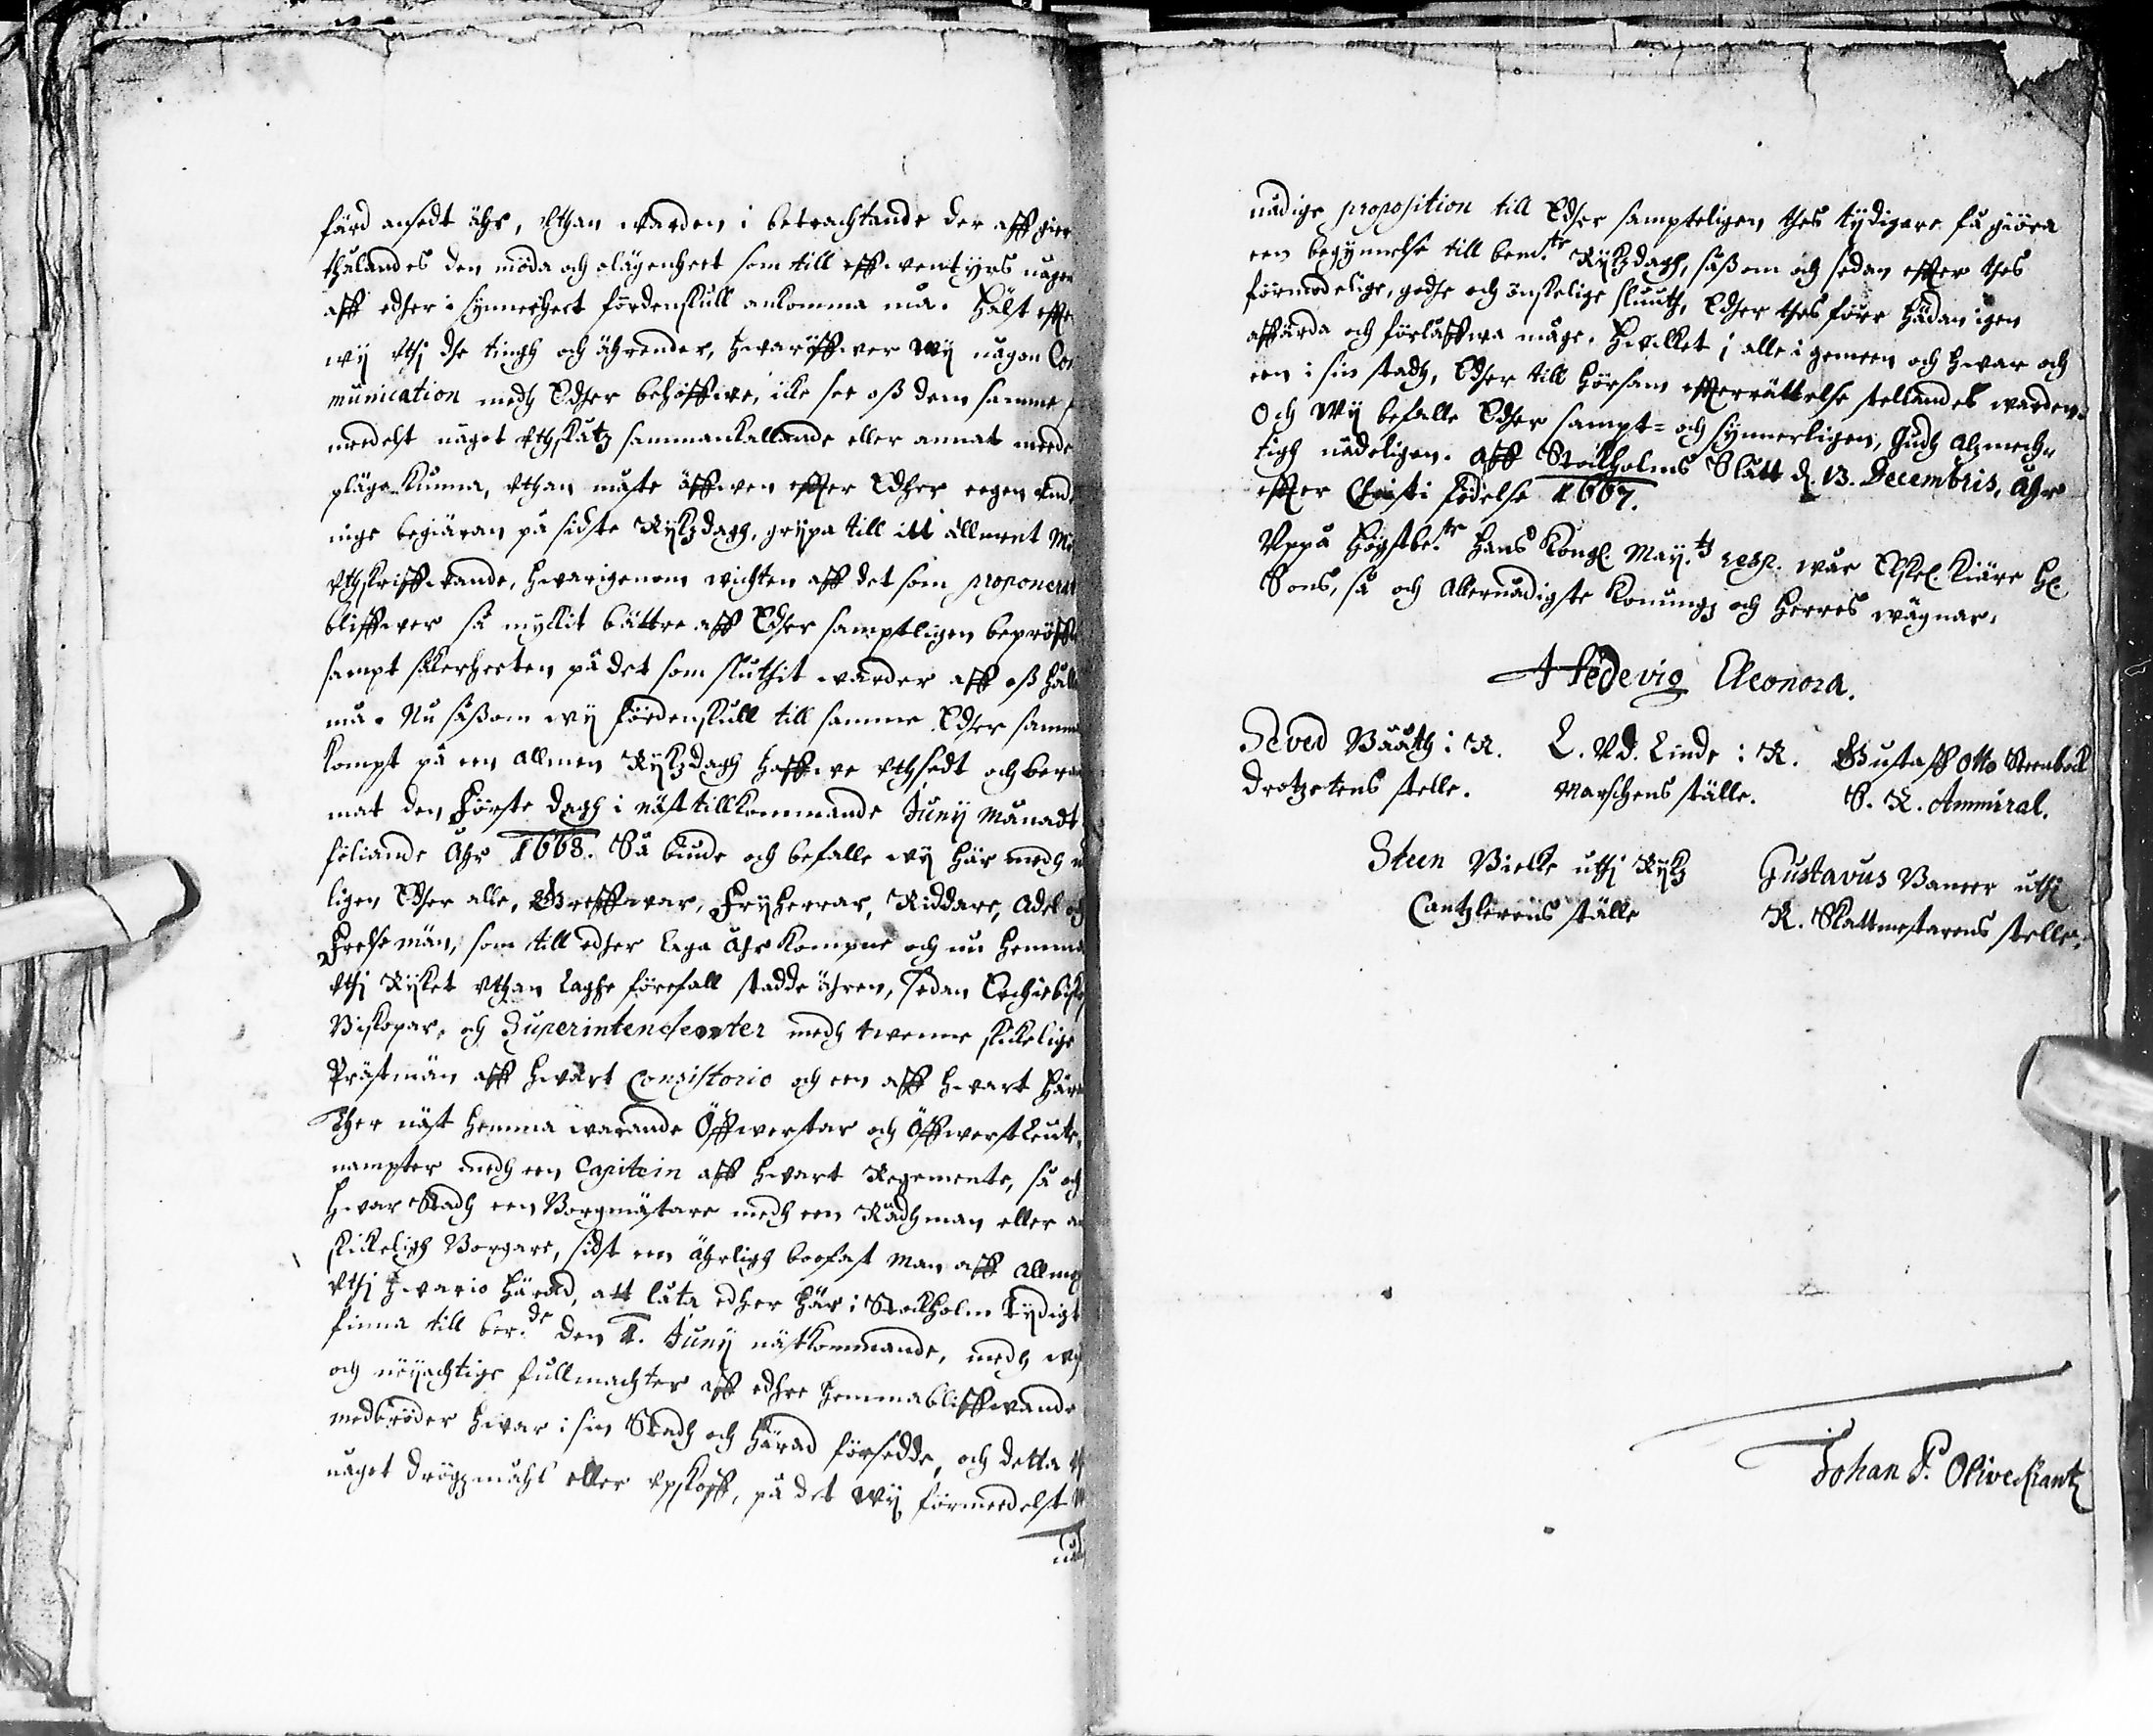 färd ansedt ähr, uthan warden i betrachtande der aff
thålandes den möda och olägenheet som till effwentyrs någen
aff edher i synnerheet fördenskull ankomma må. Hälst
wij uthj dhe tingh och ährender, hwaröffwer Wij någon Co
munication medh Edher behöffwe, icke see oß dem samme
meedelst något uthskåtz sammankallande eller annat meede
pläga kunna, uthan måste äffwen effter Edher eegen
nige begiäran på sidste Rijkzdagh, grijpa till itt allment
uthskriffwande, hwarigenom wichten aff det som proponerat
bliffwer så myckit bättre aff Edher samptligen bepröffw
sampt säkerheeten på det som sluthit warder aff oß håll
må. Nu såßom wij fördenskull till samme Edher samm
kompst på een allmen Rijkzdagh haffwe uthsedt och beram
mat den Förste dagh i näst tillkommande Junij Månadt
föliande Åhr 1668. Så biude och befalle wij här medh
ligen Edher alle, Greffwar, Frijherrar, Riddare, Adel och
Frelse män, som till edher laga åhr kompne och nu hemma
uthj Rijket uthan laghe förefall stadde ähren, sedan Erchiebisk
Biskopar, och Superintendenter medh tweenne skickelige
Prästmän aff hwart Consistorio och een aff hwart Hära
Ther näst hemma warande Öffwerstar och Öffwerst Leute,
nampter medh een Capitein aff hwart Regemente, så och
hwar Stadh een Borgmästare medh een Rådhman eller an
skickeligh Borgare, sidst een ährligh boofast Man aff Allmog
uthj hwario Härad, att låta edher här i Stockholm tijdigt
finna till ber.de den 1. Junij nästkommande, medh
och nöijachtige fullmachter aff edhre hemmabliffwande
medbröder hwar i sin Stadh och Härad försedde, och detta
något drögzmåhl eller upskoff, på det Wij förmeedelst
nådi
nådige proposition till Edher sampteligen thes tijdigare få giöra
een begynnelse till bem.te Rijkzdagh, såßom och sedan effter thes
förmodelige, godhe och önskelige sluuth, Edher thes förr hädan igen
affärda och förlåffwa måge. Hwilket i alle i gemeen och hwar och
een i sin stadh, Edher till hörsam effterrättelse stellandes warden.
Och Wij befalle Edher sampt= och synnerligen, Gudh Alzmech=
tigh nådeligen. Aff Stockholms Slått d. 13. Decembris, Åhr
effter Christi födelse 1667.
Uppå Högstbe.te Hans Kongl. May.tz resp. wår Elskel. kiäre H.
Sons, så och Allernådigste Konungz och Herres wägnar.
Hedevig Eleonora.
Seved Bååth i R. L. V.d. Linde i R. Gustaff Otto Steenbock
Drotzetens stelle. Marschens ställe. S. R. Ammiral.
Steen Bielke uthj Rijkz Gustavus Baneer uthj
Cantzlerens ställe R. Skattmestarens stelle.
Johan P. Olivekrantz